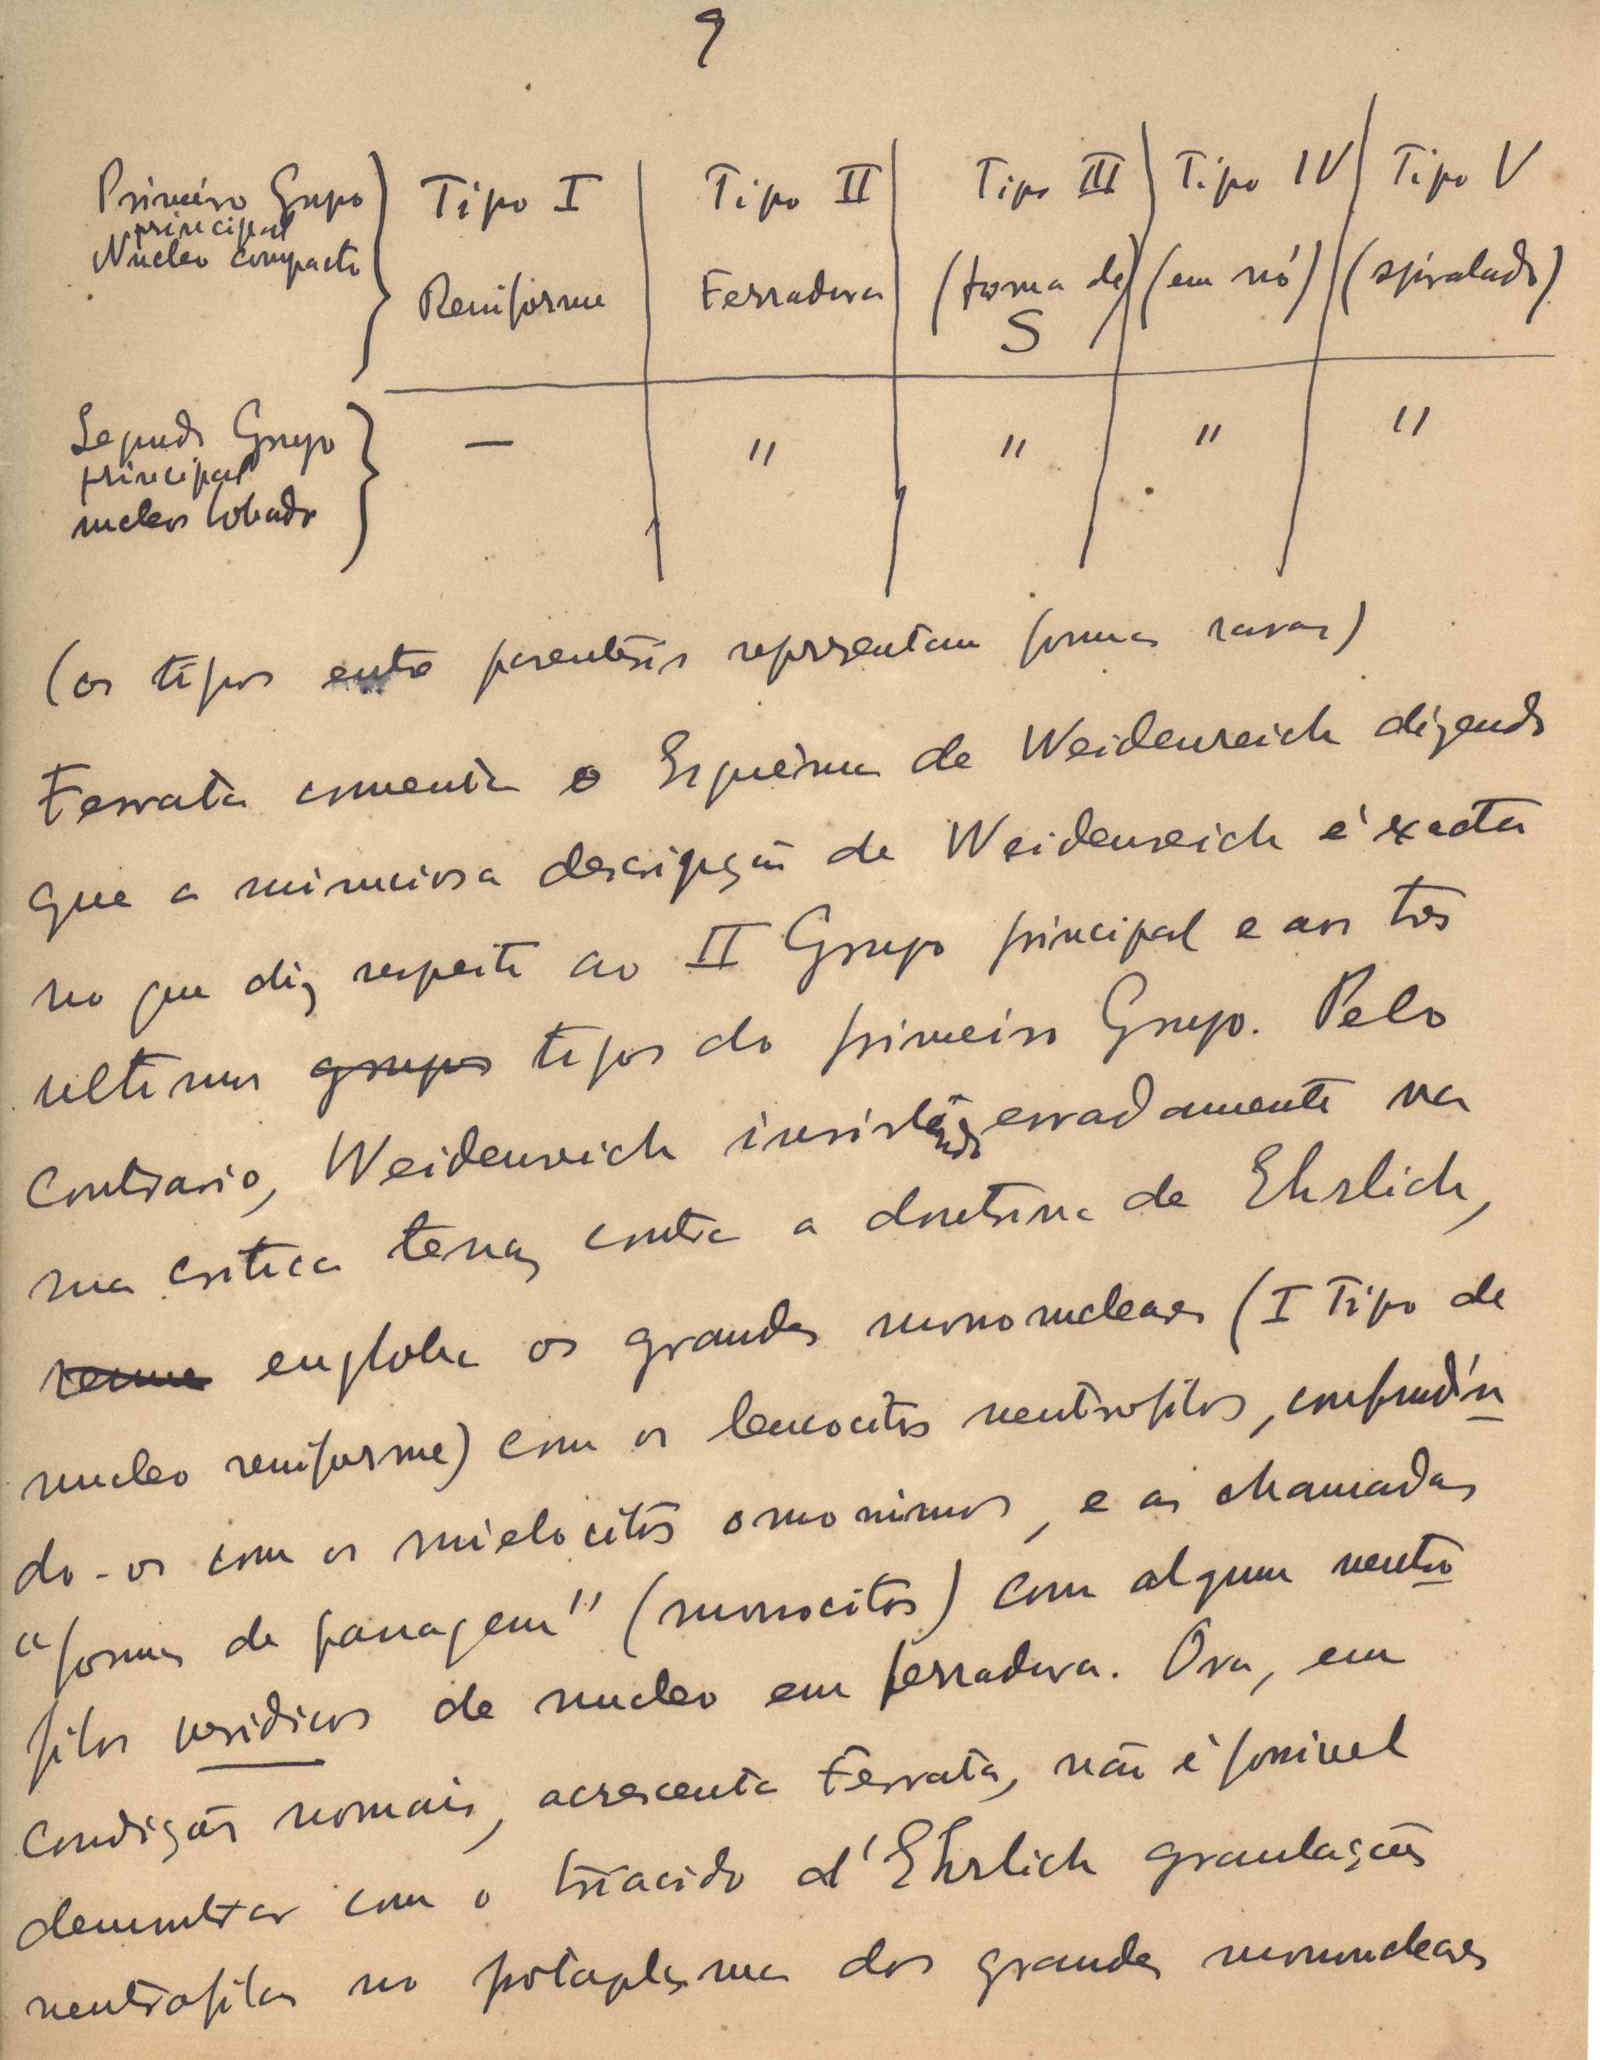 9
Primeiro Grupo
principal
Nucleo compacto
Tipo I
Tipo II
Tipo III
Tipo IV
Tipo V
Reniforme
Ferradura
(forma de
S )
(em nó)
(spiralado)
Segundo Grupo
principal
nucleos lobado
—
"
"
"
"
(os tipos entre parentesis representam formas raras)
Ferrata comenta o Esquêma de Weidenreich dizendo
que a minuciosa descripção de Weidenreich é exacta
no que diz respeito ao II Grupo principal e aos tres
ultimos grupos tipos do primeiro Grupo. Pelo
contrario, Weidenreich insistindo erradamente na
sua critica tenaz contra a doutrina de Ehrlich,
engloba os grandes mononucleares (I Tipo de
nucleo reniforme) com os leucocitos neutrofilos, confundin
do-os com os mielocitos omonimos, e as chamadas
"formas de passagem" (monocitos) com algum neutro
filos veridicos de nucleo em ferradura. Ora, em
condições normais, acrescenta Ferrata, não é possivel
demonstrar com o triacido d'Ehrlich granulações
neutrofilas no potoplasma dos grandes mononucleares